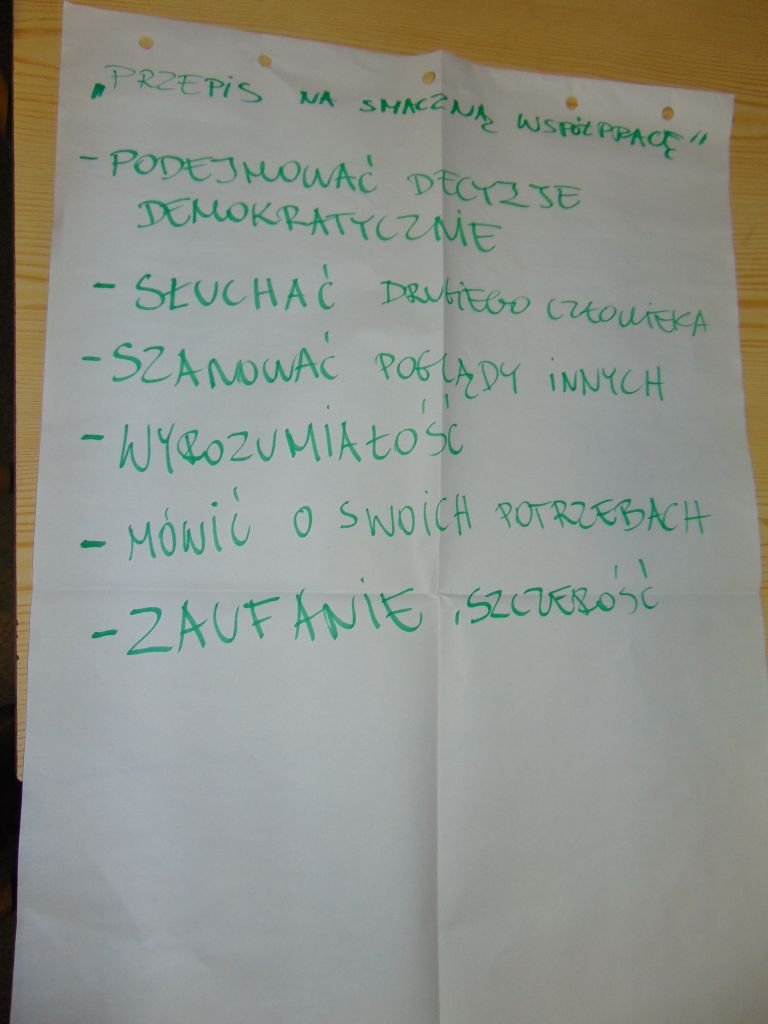 „PRZEPIS NA SMACZNĄ WSPÓŁPRACĘ”
- PODEJMOWAĆ DECYZJE
DEMOKRATYCZNIE
- SŁUCHAĆ DRUGIEGO CZŁOWIEKA
- SZANOWAĆ POGLĄDY INNYCH
- WYROZUMIAŁOŚĆ
- MÓWIĆ O SWOICH POTRZEBACH
- ZAUFANIE, SZCZEROŚĆ